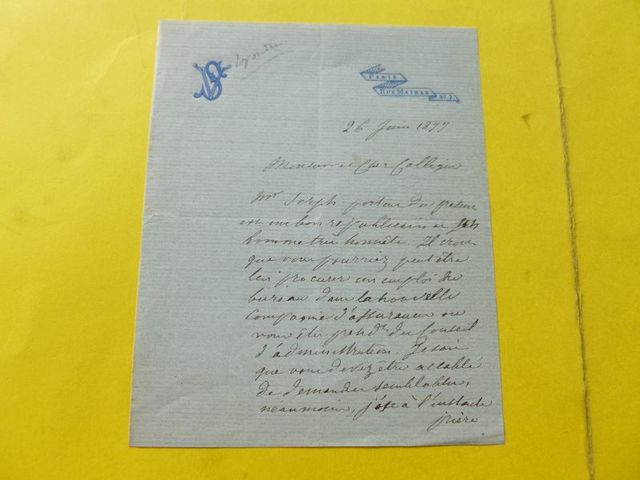 PARIS
RUE MAYRAN
Nº 7.
26 Juin 1877
Monsieur et Cher Collègue
Mr Joseph porteur du présent
est un bon républicain et un
homme très honnête. Il croit
que vous pourriez peut être
lui procurer un emploi de
bureau dans la nouvelle
compagnie d'assurances où
vous êtes présdt du Conseil
d'administration. Je sais
que vous devez être accablé
de demandes semblables,
néanmoins, j'ose à l'instante
prière